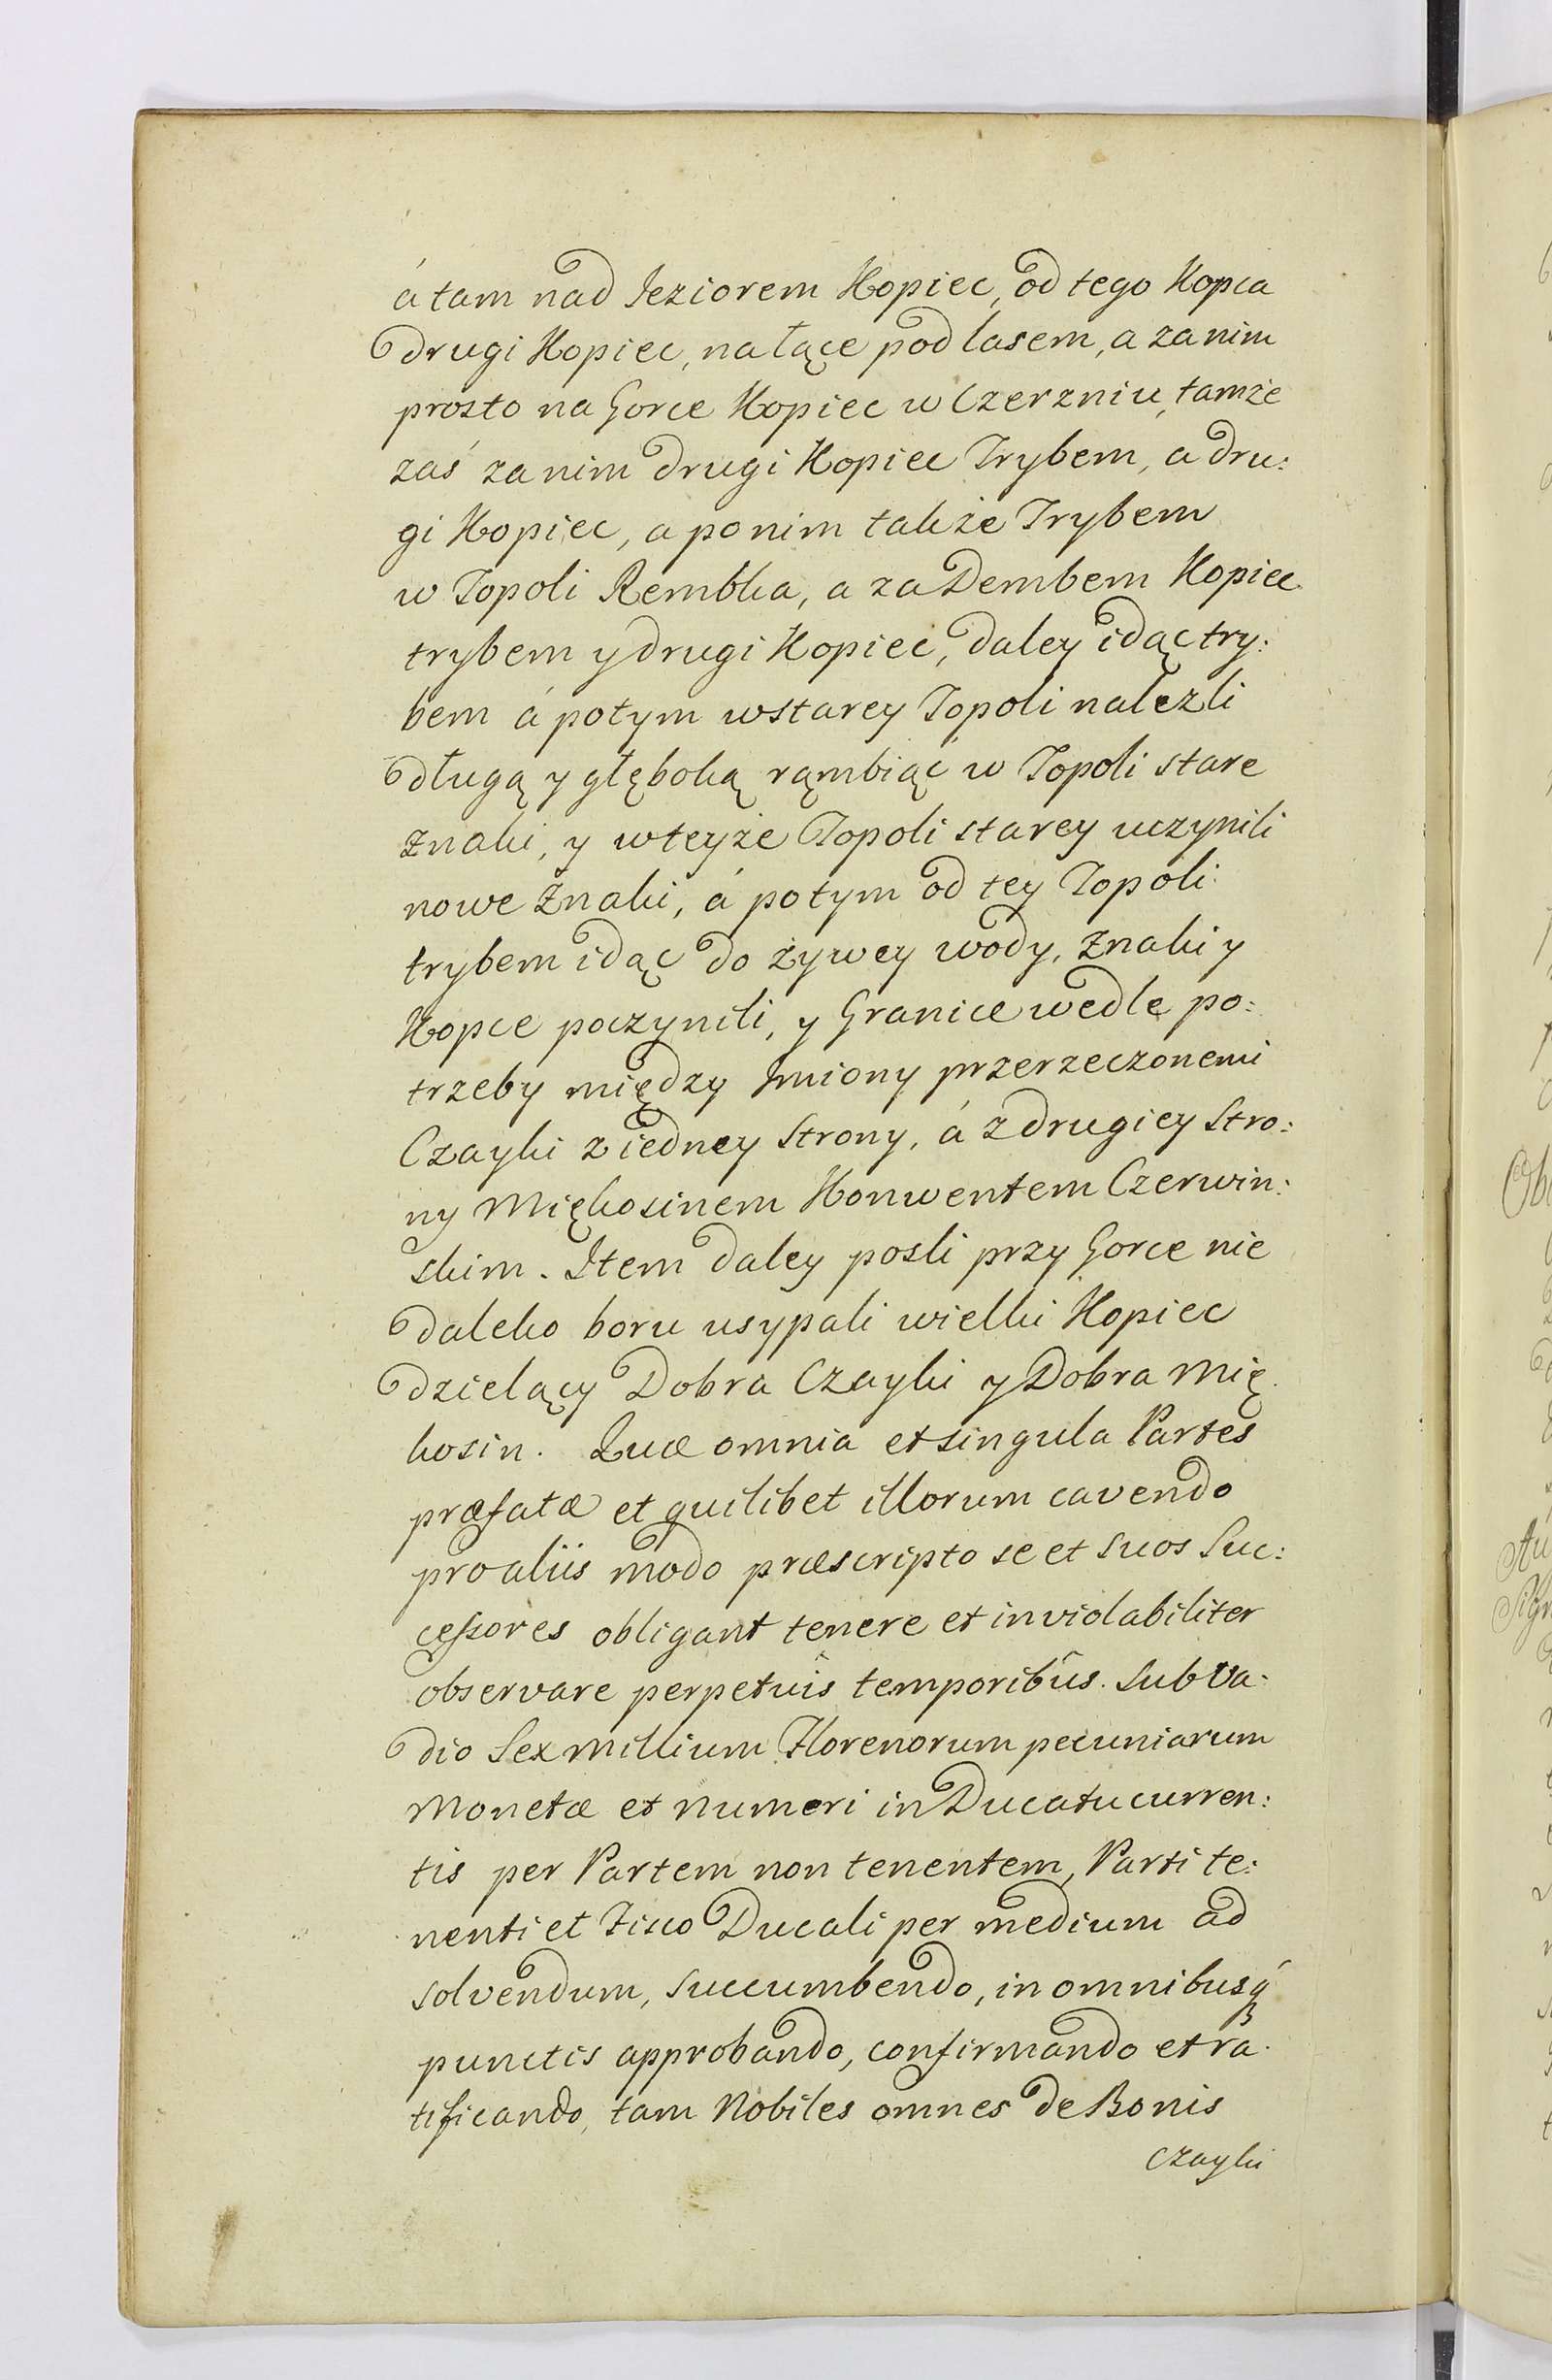 á tam nad Jeziorem Kopiec, od tego Kopca
drugi Kopiec, na łące pod lasem, a za nim
prosto na Gorce Kopiec w Czerzniu, tamże
zaś za nim drugi Kopiec Trybem, a dru:
gi Kopiec, a po nim także Trybem
w Topoli Rembka, a za Dembem Kopiec
trybem y drugi Kopiec, daley idąc try:
bem á potym w starey Topoli naleźli
długą y głęboką rąmbiąć w Topoli stare
znaki, y w teyże Topoli starey uczynili
nowe Znaki, á potym od tey Topoli
trybem idąc do żywey wody, Znaki y
Kopce poczynili, y Granice wedle po:
trzeby między Jmiony przerzeczonemi
Czayki z iedney Strony, á z drugiey Stro:
ny Miękosinem Konwentem Czerwin:
skim. Item daley posli przy Gorce nie
daleko boru usypali wielki Kopiec
dzielący Dobra Czayki y Dobra Mię
kosin. Quæ omnia et singula Partes
præfatæ et quilibet illorum cavendo
pro aliis modo præscripto se et Suos Suc:
cessores obligant tenere et inviolabiliter
observare perpetuis temporibûs. Sub va:
dio Sex Millium Florenorum pecuniarum
Monetæ et Numeri in Ducatu curren:
tis per Partem non tenentem, Parti te:
nenti et Fisco Ducali per medium ad
solvendum, succumbendo, in omnibusq́
punctis approbando, confirmando et ra:
tificando, tam Nobiles omnes de Bonis
Czayki